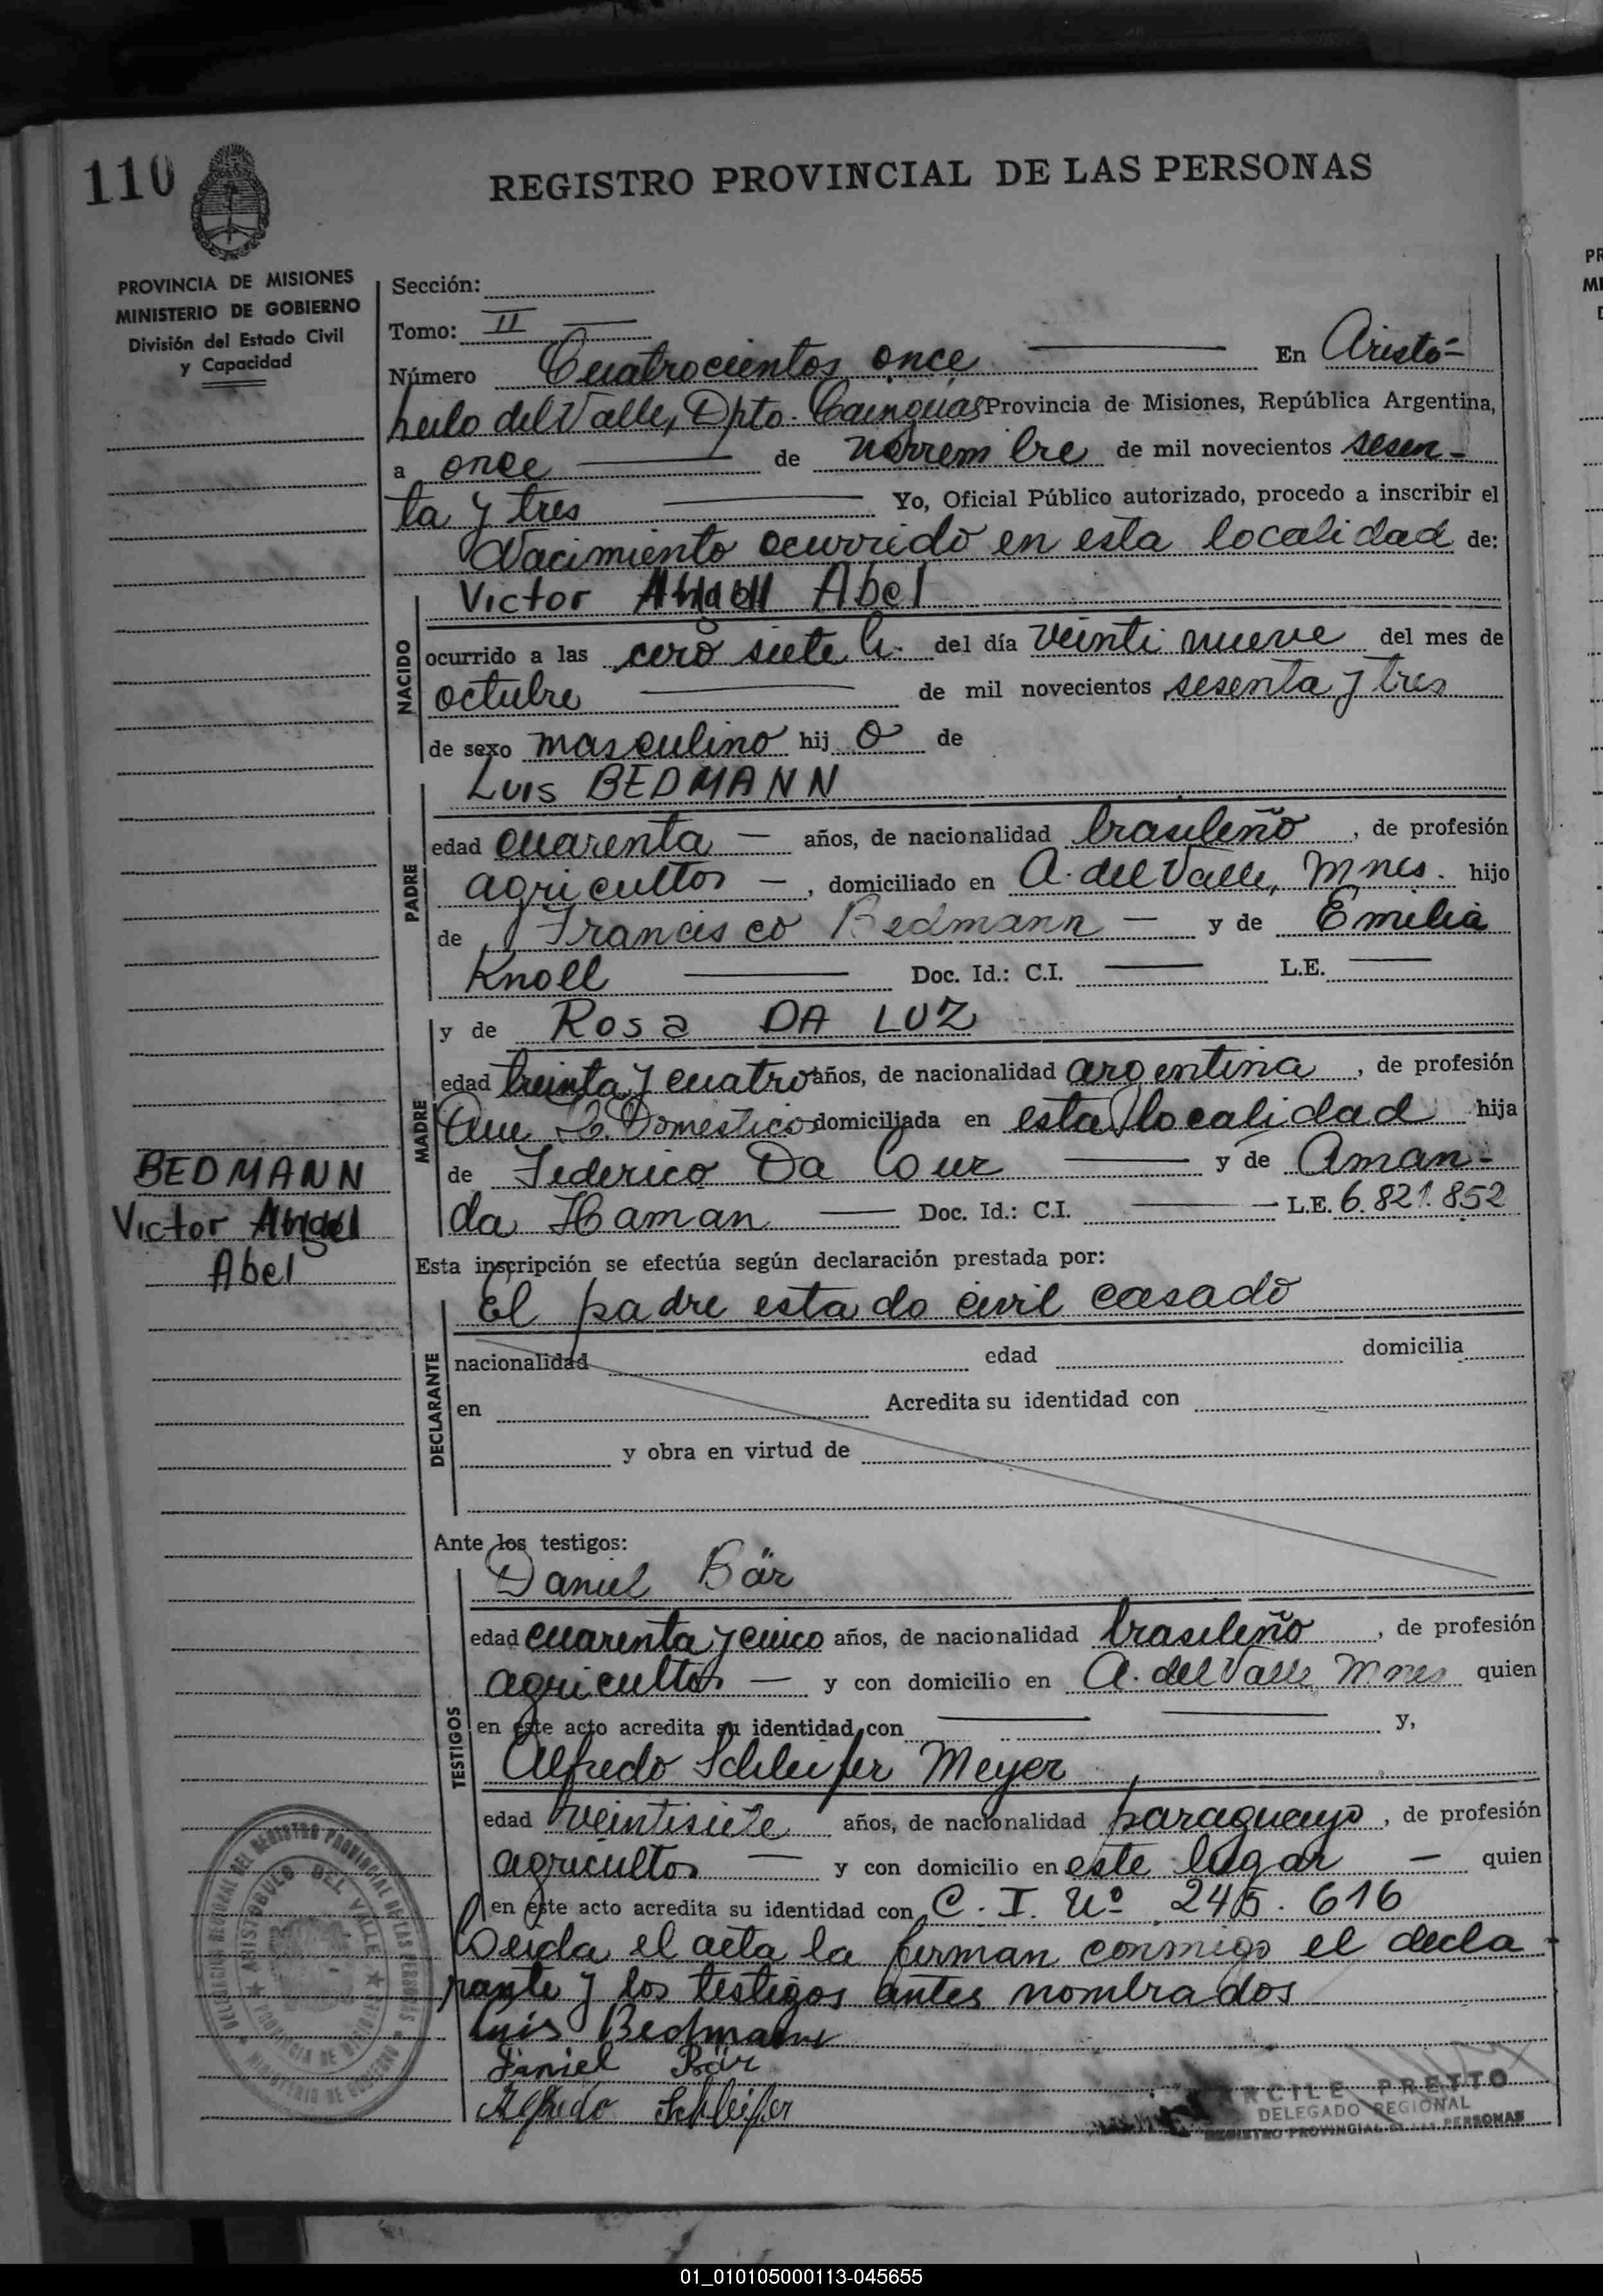 110
REGISTRO PROVINCIAL DE LAS PERSONAS
PROVINCIA DE MISIONES
MINISTERIO DE GOBIERNO
División del Estado Civil
y Capacidad
Sección:
Tomo: II
Número Cuatrocientos once En Aristó-
bulo del Valle, Dpto. Cainguas Provincia de Misiones, República Argentina,
a once de noviembre de mil novecientos sesen-
ta y tres Yo, Oficial Público autorizado, procedo a inscribir el
Nacimiento ocurrido en esta localidad de:
Victor Abel
NACIDO
ocurrido a las cero siete h. del día veinti nueve del mes de
octubre de mil novecientos sesenta y tres
de sexo masculino hij o de
Luis BEDMANN
PADRE
edad cuarenta — años, de nacionalidad brasileño, de profesión
agricultor —, domiciliado en A. del Valle, Mnes. hijo
de Francisco Bedmann — y de Emilia
Knoll Doc. Id.: C.I. L.E.
y de Rosa DA LUZ
MADRE
edad treinta y cuatro años, de nacionalidad argentina, de profesión
Que H. Domesticos domiciliada en esta localidad hija
de Federico Da Couz y de Aman-
da Haman — Doc. Id.: C.I. — L.E. 6.821.852
BEDMANN
Victor
Abel
Esta inscripción se efectúa según declaración prestada por:
El padre estado civil casado
DECLARANTE
nacionalidad edad domicilia
en Acredita su identidad con
y obra en virtud de
Ante los testigos:
Daniel Bär
TESTIGOS
edad cuarenta y cinco años, de nacionalidad brasileño, de profesión
agricultor — y con domicilio en A. del Valle Mnes quien
en este acto acredita su identidad con y,
Alfredo Schleifer Meyer
edad veintisiete años, de nacionalidad paraguayo, de profesión
agricultor — y con domicilio en este lugar — quien
en este acto acredita su identidad con C. I. Nº 245.616
Leida el acta la firman conmigo el decla-
rante y los testigos antes nombrados
Luis Bedmann
Daniel Bär
Alfredo Schleifer
PRETTO
DELEGADO REGIONAL
REGISTRO PROVINCIAL DE LAS PERSONAS
DELEGACION REGIONAL DEL REGISTRO PROVINCIAL DE LAS PERSONAS
ARISTOBULO DEL VALLE
PROVINCIA DE MISIONES
MINISTERIO DE GOBIERNO
01_010105000113-045655